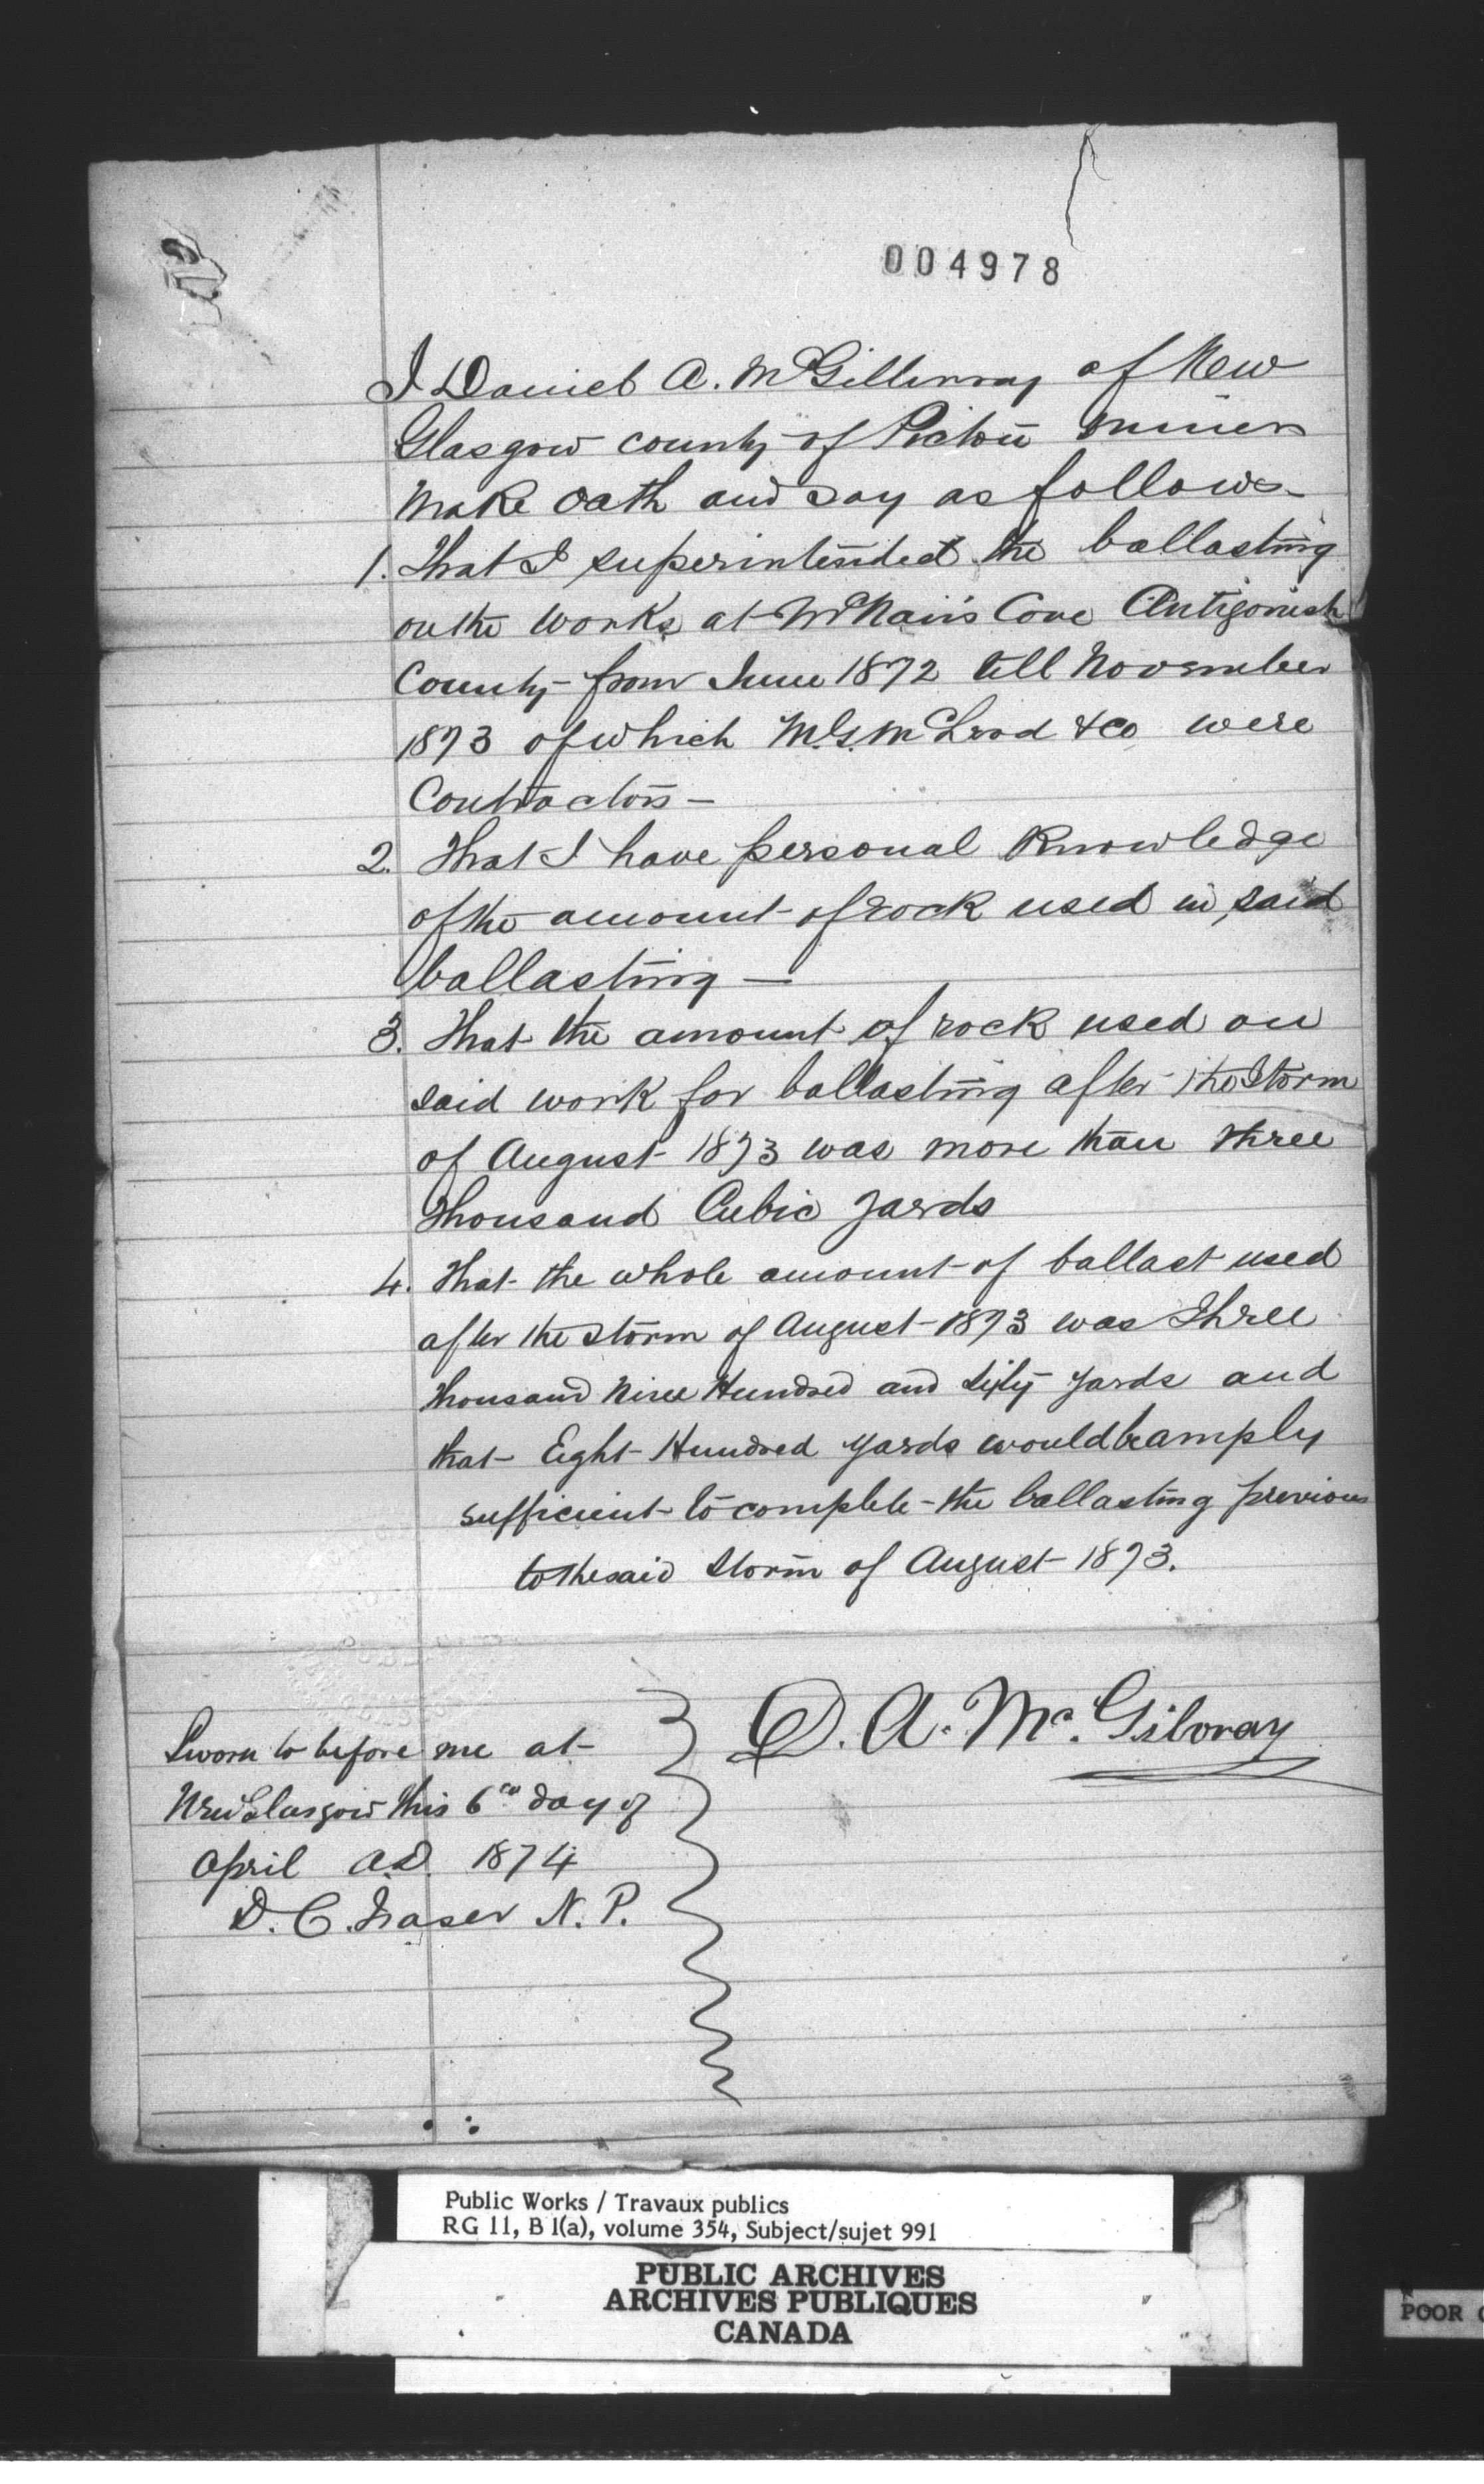 004978
I Daniel A. McGillivray of New
Glasgow county of Pictou miner
Make oath and say as follows-
1. That I superintended the ballasting
on the works at McNairs Cove Antigonish
County from June 1872 till November
1873 of which M.G. McLeod & Co were
Contractors -
2. That I have personal Knowledge
of the amount of rock used in said
ballasting -
3. That the amount of rock used on
said work for ballasting after the storm
of August 1873 was more than three
thousand Cubic yards
4. That the whole amount of ballast used
after the storm of August 1873 was three
thousand nine Hundred and yards and
that Eight Hundred yards would be amply
sufficient to complete the ballasting previous
to the said storm of August 1873.
D. A. Mc. Gilvray
Sworn to before me at
New Glasgow this 6th day of
April A.D. 1874
D. C. Fraser N. P.
Public Works / Travaux publics
RG 11, B 1(a), volume 354, Subject/sujet 991
PUBLIC ARCHIVES
ARCHIVES PUBLIQUES
CANADA
POOR